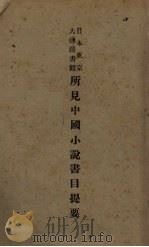 日本東京
大連圖書館
所見中國小說書目提要